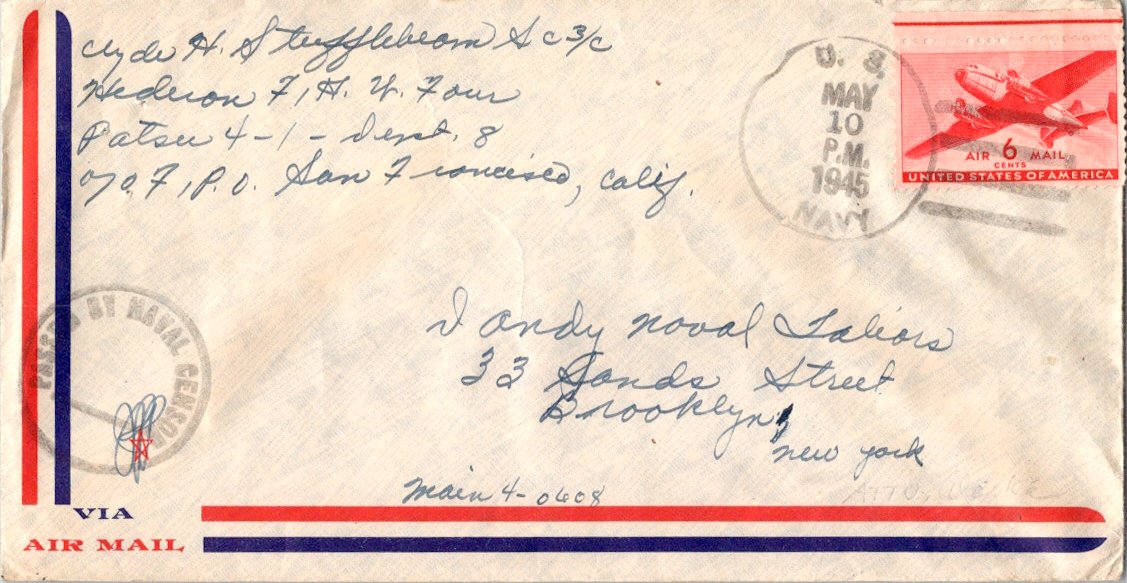 Clyde H. Stufflebeam S c 3/c
Hedron 7, H. W. Four
Patsu 4-1- Dept. 8
c/o F, P.O. San Francisco, Calif.
U. S.
MAY
10
P.M.
1945
NAVY
AIR 6 MAIL
CENTS
UNITED STATES OF AMERICA
PASSED BY NAVAL CENSOR
Dandy Naval Tailors
33 Sands Street
Brooklyn,
new york
Main 4-0608
VIA
AIR MAIL